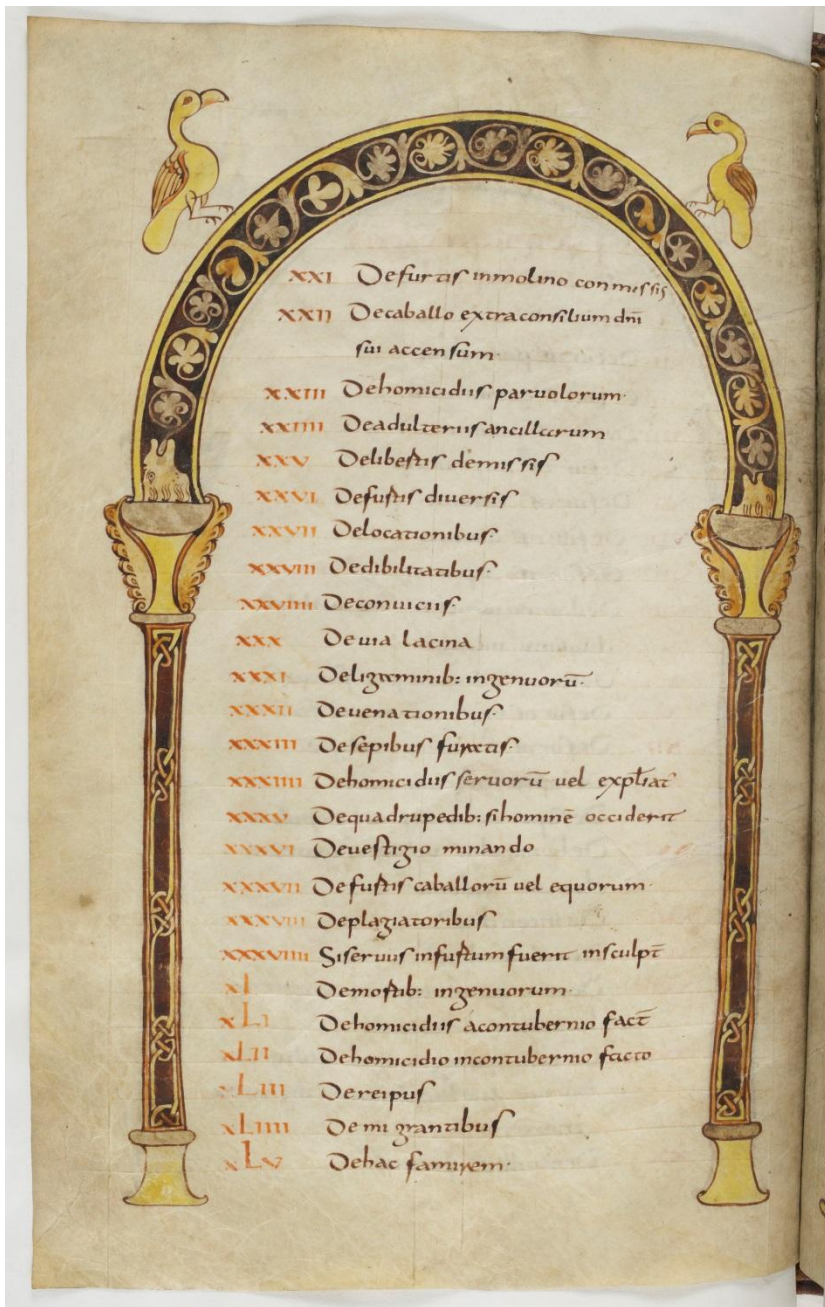 XXI Defurtis inmolino conmissis
XXII Decaballo extraconsilium dnī
sui accensum
XXIII Dehomicidiis parvolorum
XXIIII Deadulteriis ancillarum
XXV Delibertis demissis
XXVI Defurtis diversis
XXVII Delocationibus
XXVIII Dedibilitatibus
XXVIIII Deconviciis
XXX Devia lacina
XXXI Deligaminib: ingenuorū
XXXII Devenationibus
XXXIII Desepibus furatis
XXXIIII Dehomicidiis servorū vel expl̄iat̄
XXXV Dequadrupedib: sihominē occiderit
XXXVI Devestigio minando
XXXVII Defurtis caballorū vel equorum
XXXVIII Deplagiatoribus
XXXVIIII Siservus infurtum fuerit insculpt̄
XL Demortib: ingenuorum
XLI Dehomicidiis acontubernio fact̄
XLII Dehomicidio incontubernio facto
XLIII Dereipus
XLIIII Demigrantibus
XLV Dehac famirem